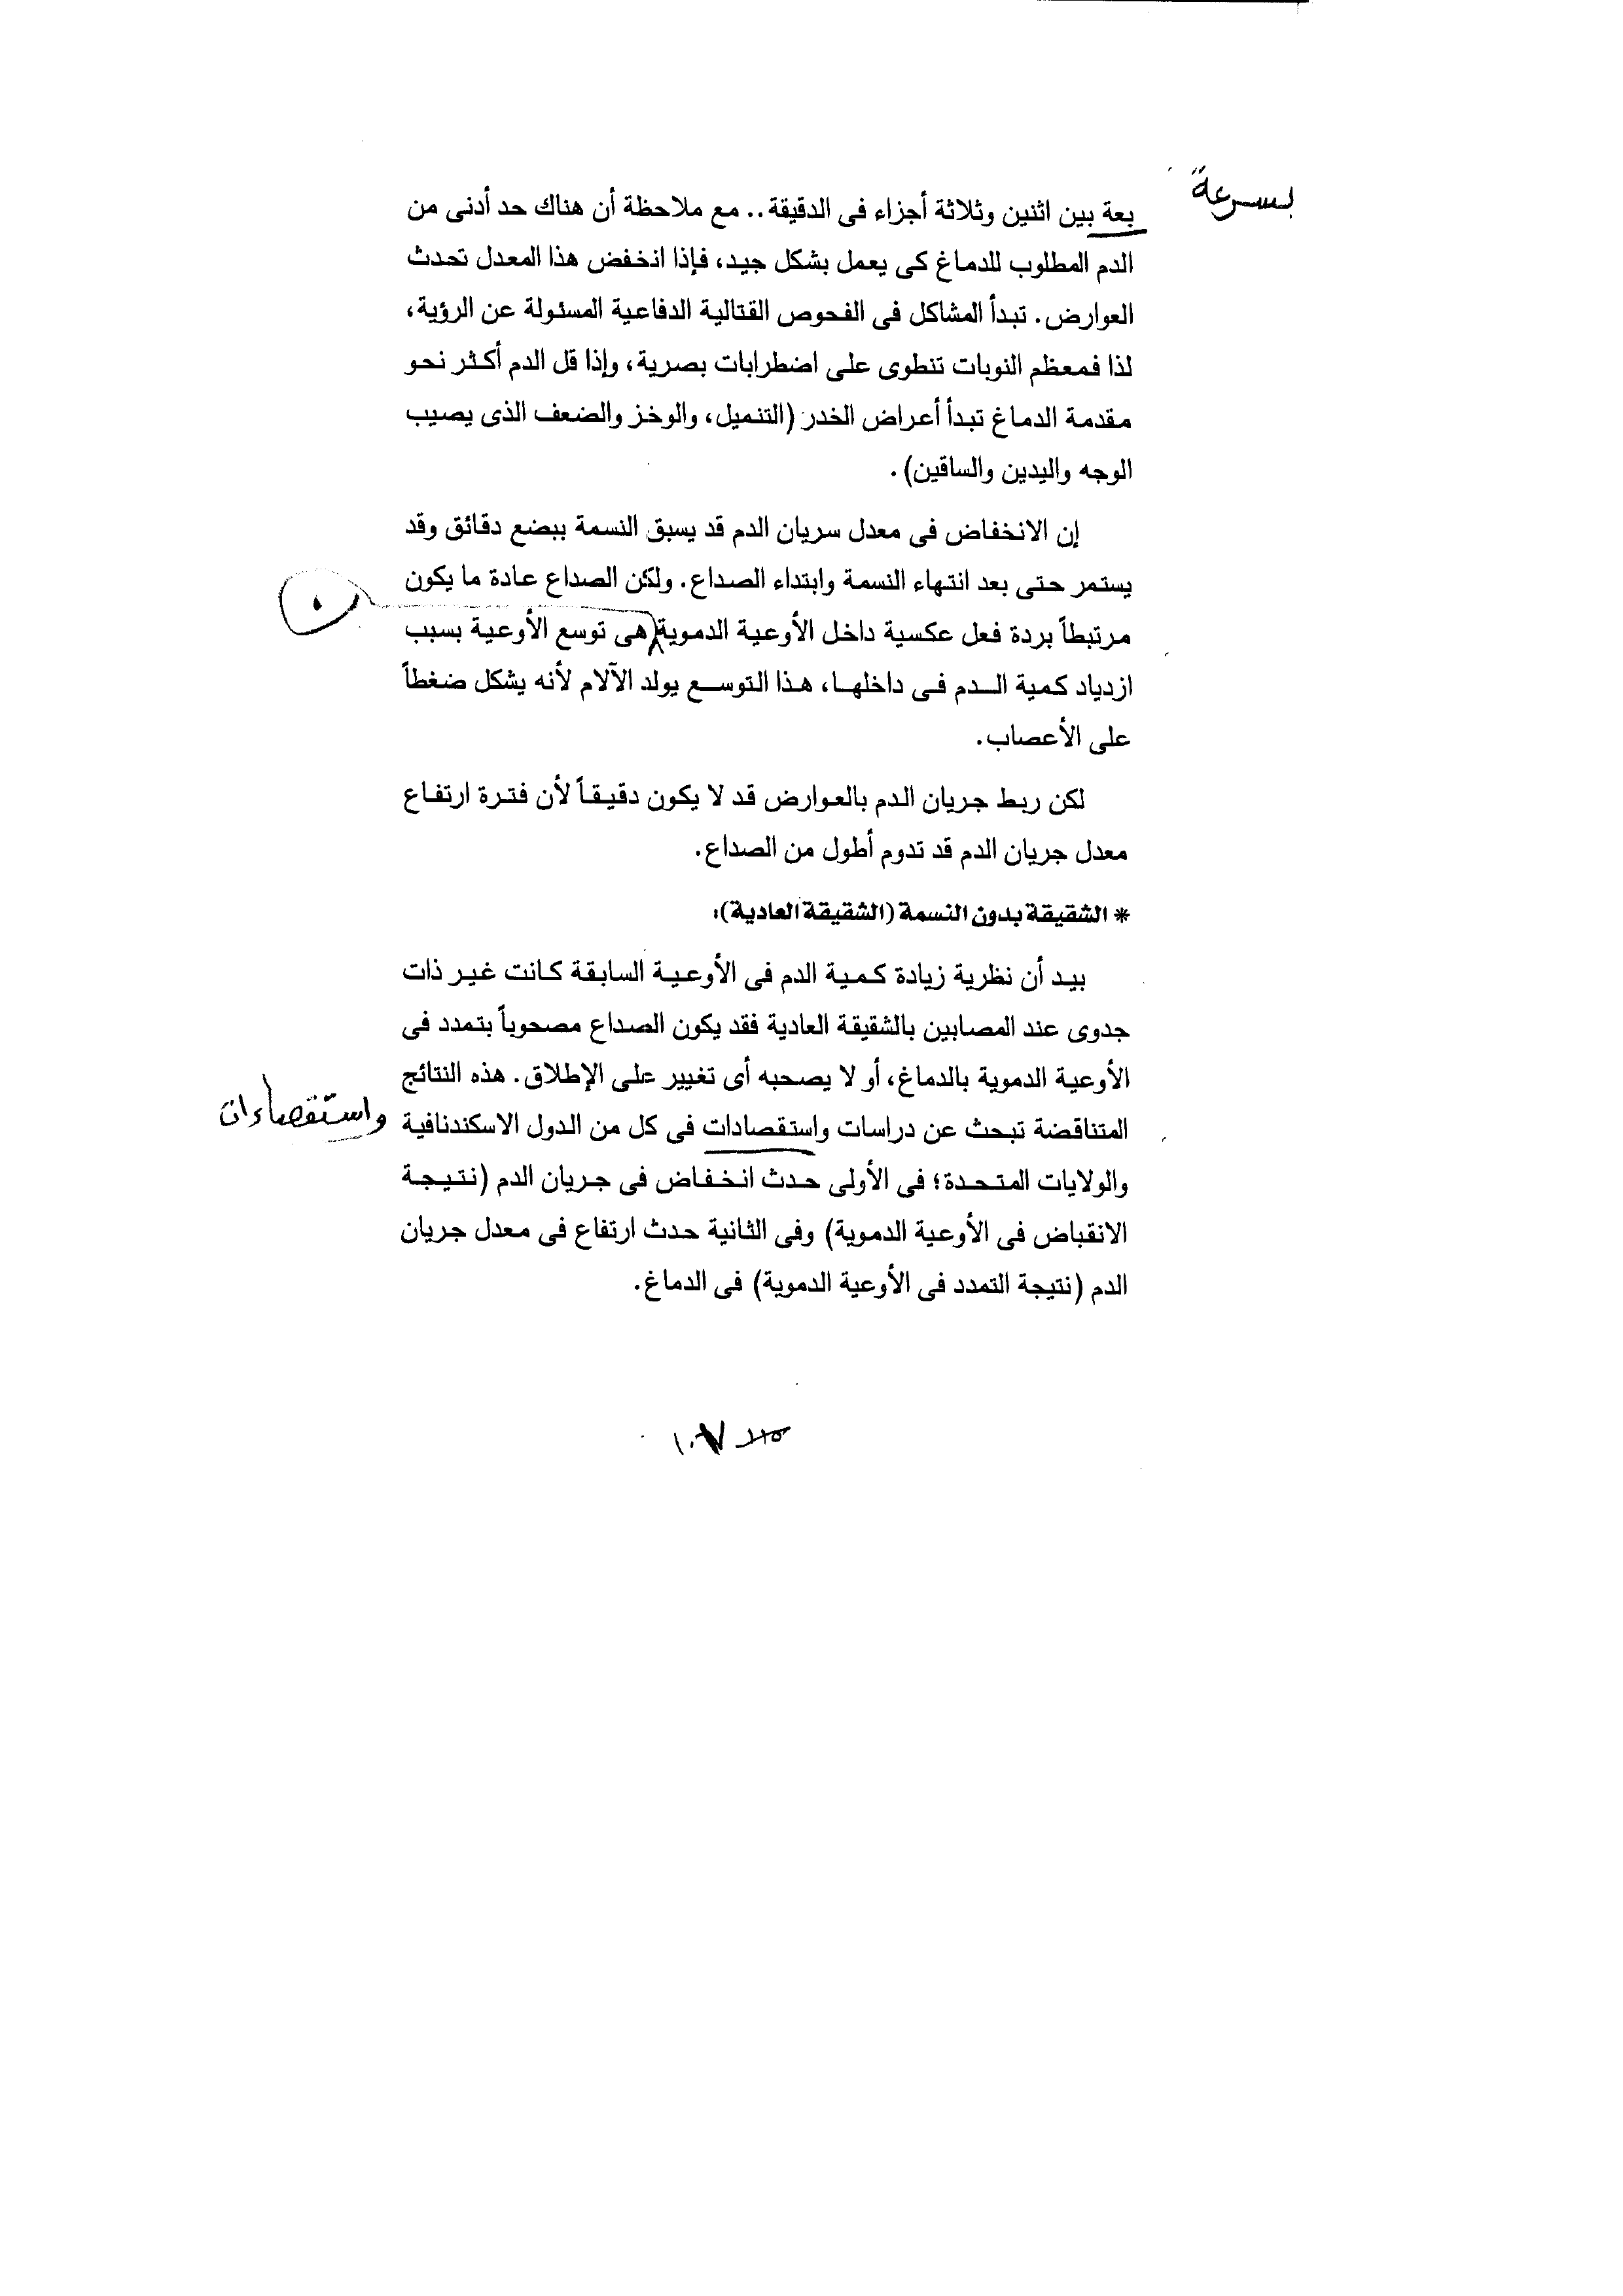 بسرعة
بعة بين اثنين وثلاثة أجزاء فى الدقيقة.. مع ملاحظة أن هناك حد أدنى من
الدم المطلوب للدماغ كى يعمل بشكل جيد، فإذا انخفض هذا المعدل تحدث
العوارض. تبدأ المشاكل فى الفحوص القتالية الدفاعية المسئولة عن الرؤية،
لذا فمعظم النوبات تنطوى على اضطرابات بصرية، وإذا قل الدم أكثر نحو
مقدمة الدماغ تبدأ أعراض الخدر (التنميل، والوخز والضعف الذى يصيب
الوجه واليدين والساقين).
إن الانخفاض فى معدل سريان الدم قد يسبق النسمة ببضع دقائق وقد
يستمر حتى بعد انتهاء النسمة وابتداء الصداع. ولكن الصداع عادة ما يكون
مرتبطاً بردة فعل عكسية داخل الأوعية الدموية هى توسع الأوعية بسبب
ازدياد كمية الدم فى داخلها، هذا التوسع يولد الآلام لأنه يشكل ضغطاً
على الأعصاب.
لكن ربط جريان الدم بالعوارض قد لا يكون دقيقاً لأن فترة ارتفاع
معدل جريان الدم قد تدوم أطول من الصداع.
* الشقيقة بدون النسمة (الشقيقة العادية):
بيد أن نظرية زيادة كمية الدم فى الأوعية السابقة كانت غير ذات
جدوى عند المصابين بالشقيقة العادية فقد يكون الصداع مصحوباً بتمدد فى
الأوعية الدموية بالدماغ، أو لا يصحبه أى تغيير على الإطلاق. هذه النتائج
المتناقضة تبحث عن دراسات واستقصادات فى كل من الدول الاسكندنافية
واستقصاءات
والولايات المتحدة؛ فى الأولى حدث انخفاض فى جريان الدم (نتيجة
الانقباض فى الأوعية الدموية) وفى الثانية حدث ارتفاع فى معدل جريان
الدم (نتيجة التمدد فى الأوعية الدموية) فى الدماغ.